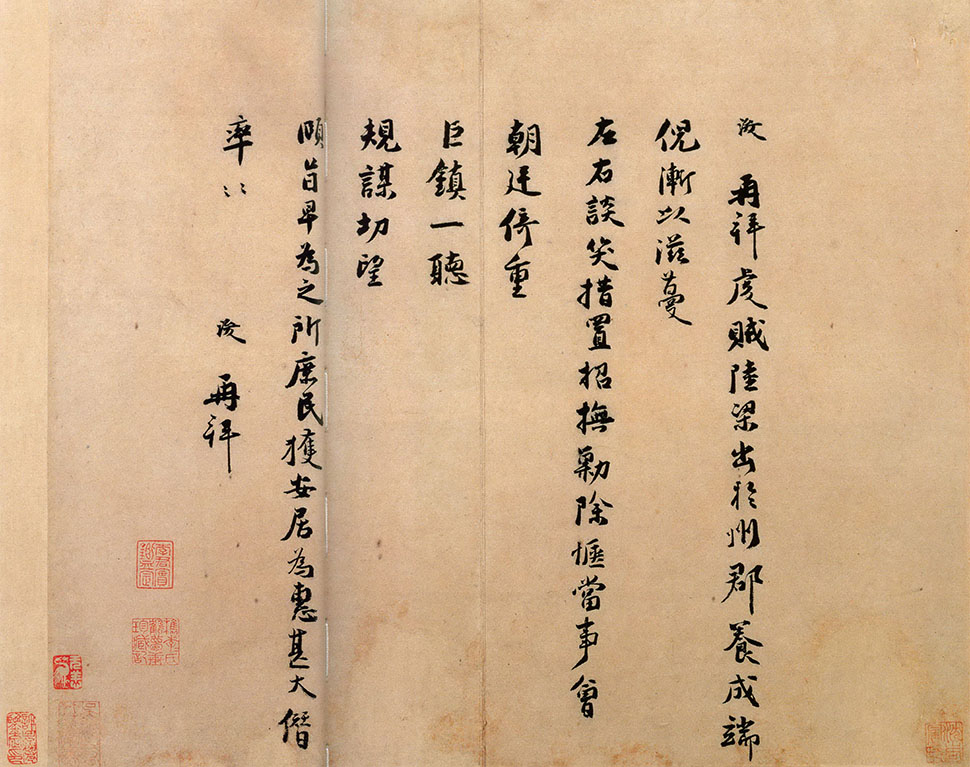 浚 再拜虔賊陸梁出於州郡養成端
倪漸以滋蔓
左右談笑措置招撫勦除愜當事會
朝廷倚重
巨鎮一聽
規謀切望
頤旨早為之所庶民獲安居為惠甚大僭
率〻 浚 再拜